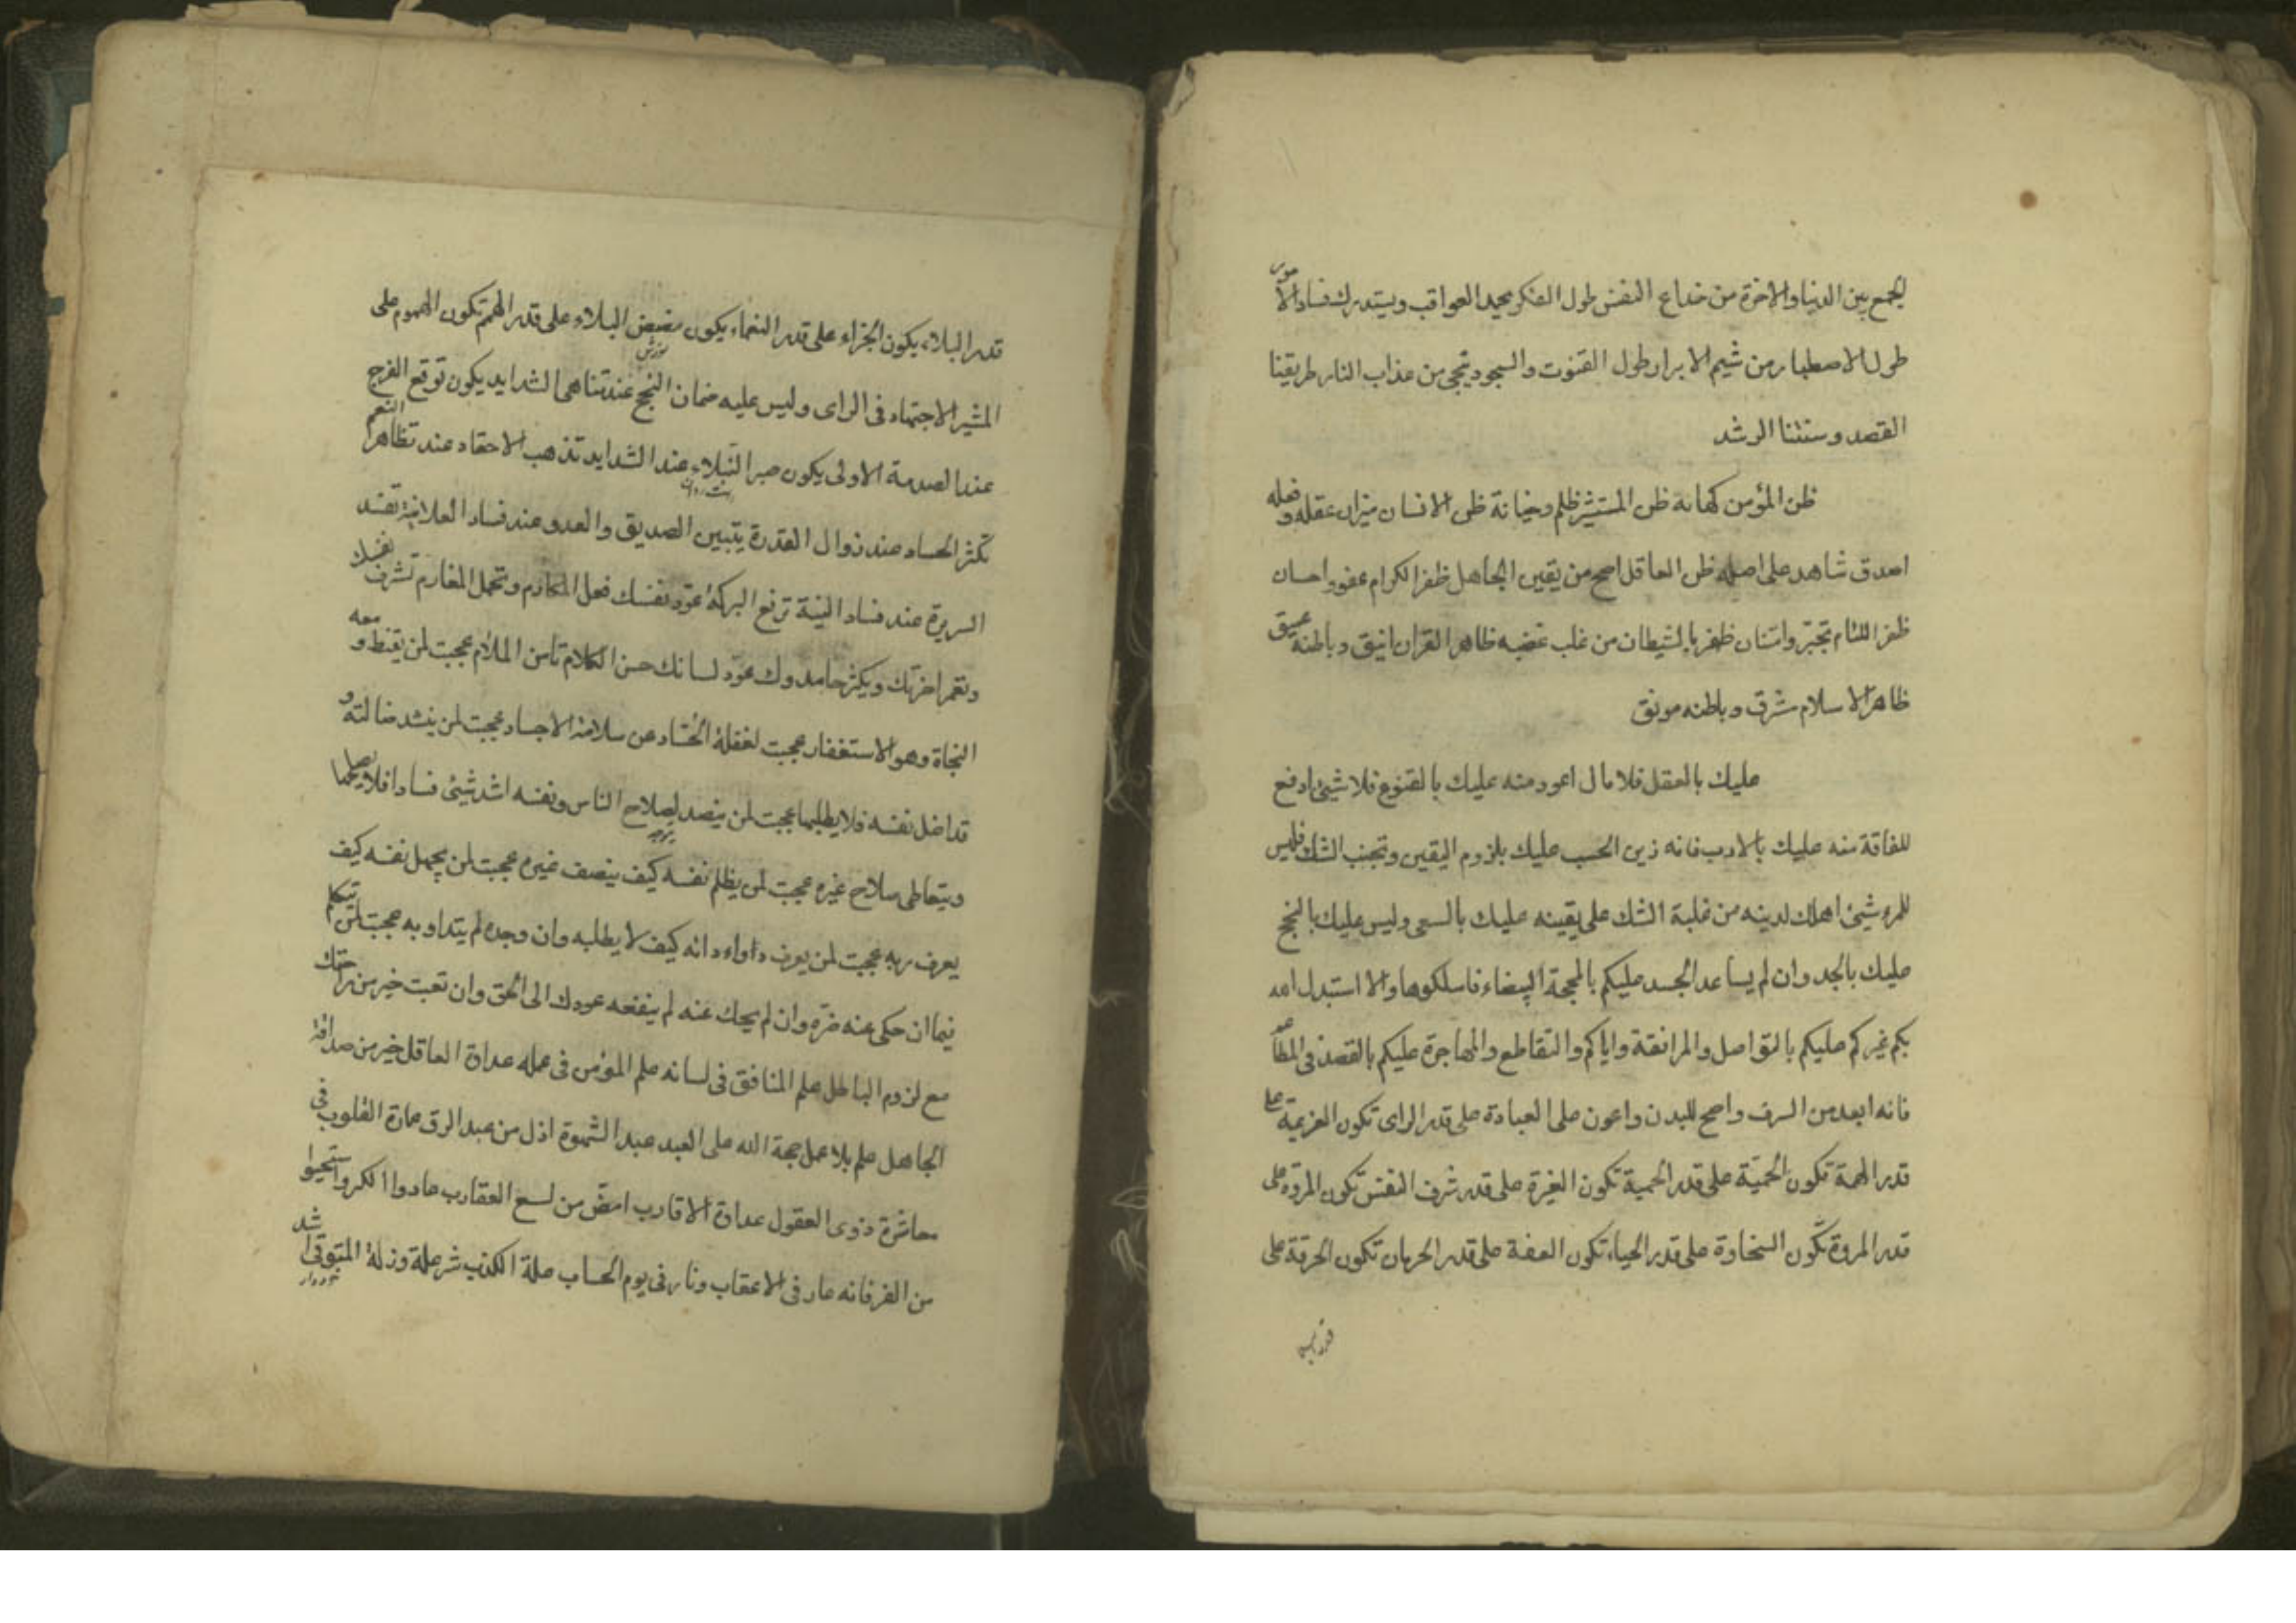 لجمع بين الدنيا والاخرة من خداع النفس طول الفكر يحمد العواقب ويستدرك فساد الامور
طول الاصطبار من شيم الابرار طول القنوت والسجود ينجى من عذاب النار طريقتنا
القصد وسنتنا الرشد
ظن المؤمن كهانة ظن المستشير ظلم وخيانة ظن الانسان ميزان عقله وفعله
اصدق شاهد على اصله ظن العاقل اصح من يقين الجاهل ظفر الكرام عفو واحسان
ظفر اللئام تجبر وامتنان ظفر بالشيطان من غلب غضبه ظاهر القران انيق وباطنه عميق
ظاهر الاسلام شرق وباطنه مونق
عليك بالعقل فلا مال اعود منه عليك بالقنوع فلا شيئ ادفع
للفاقة منه عليك بالادب فانه زين الحسب عليك بلزوم اليقين وتجنب الشك فليس
للمرء شيئ اهلك لدينه من غلبة الشك على يقينه عليك بالسعى وليس عليك بالنجح
عليك بالجد وان لم يساعد الجسد عليكم بالمحجة البيضاء فاسلكوها والا استبدل الله
بكم غيركم عليكم بالتواصل والمرافقة واياكم والتقاطع والمهاجرة عليكم بالقصد فى المطاعم
فانه ابعد من السرف واصح للبدن واعون على العبادة على قدر الراى تكون العزيمة على
قدر الهمة تكون الحمية على قدر الحمية تكون الغيرة على قدر شرف النفس تكون المروة على
قدر المروة تكون السخاوة على قدر الحياء تكون العفة على قدر الحرمان تكون الحرقة على
قدر البلاء يكون الجزاء على قدر النعماء يكون مضض البلاء على قدر الهمم تكون الهموم على
المشير الاجتهاد فى الراى وليس عليه ضمان النجح عند تناهى الشدايد يكون توقع الفرج
عند الصدمة الاولى يكون صبر النبلاء عند الشدايد تذهب الاحقاد عند تظاهر النعم
تكثر الحساد عند زوال القدرة يتبين الصديق والعدو عند فساد العلانية تفسد
السريرة عند فساد النية ترفع البركة عود نفسك فعل المكارم وتحمل المغارم تشرف نفسك
وتعمر اخرتك ويكثر حامدوك عود لسانك حسن الكلام تأمن الملام عجبت لمن يقنط ومعه
النجاة وهو الاستغفار عجبت لغفلة الحساد عن سلامة الاجساد عجبت لمن ينشد ضالته و
قد اضل نفسه فلا يطلبها عجبت لمن يتصد لصلاح الناس ونفسه اشد شيئ فسادا فلا يصلحها
ويتعاطى صلاح غيره عجبت لمن يظلم نفسه كيف ينصف غيره عجبت لمن يجهل نفسه كيف
يعرف ربه عجبت لمن يعرف داواء دائه كيف لا يطلبه وان وجده لم يتداو به عجبت لمن يتكلم
فيما ان حكى عنه ضره وان لم يحك عنه لم ينفعه عودك الى الحق وان تعبت خير من راحتك
مع لزوم الباطل علم المنافق فى لسانه علم المؤمن فى عمله عداوة العاقل خير من صداقة
الجاهل علم بلا عمل حجة الله على العبد عبد الشهوة اذل من عبد الرق عمارة القلوب فى
معاشرة ذوى العقول عداوة الاقارب امض من لسع العقارب عادوا الكر واستحيوا
من الفر فانه عار فى الاعقاب ونار فى يوم الحساب علة الكذب شر علة وزلة المتوقى اشد